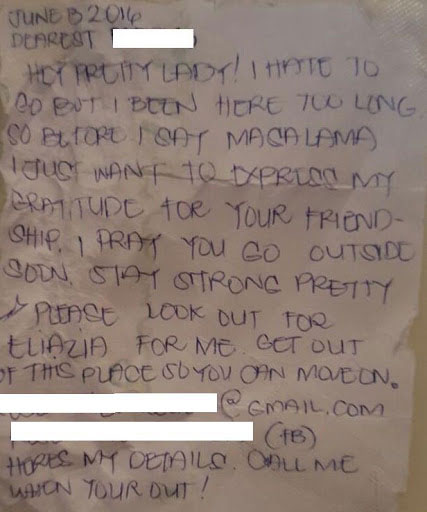 JUNE 3 2016
DEAREST
HEY PRETTY LADY! I HATE TO
GO BUT I BEEN HERE TOO LONG.
SO BEFORE I SAY MASALAMA
I JUST WANT TO EXPRESS MY
GRATITUDE FOR YOUR FRIEND-
SHIP. I PRAY YOU GO OUTSIDE
SOON. STAY STRONG PRETTY
PLEASE LOOK OUT FOR
ELIAZIA FOR ME. GET OUT
OF THIS PLACE SO YOU CAN MOVE ON.
@GMAIL.COM
(FB)
HERES MY DETAILS. CALL ME
WHEN YOUR OUT!